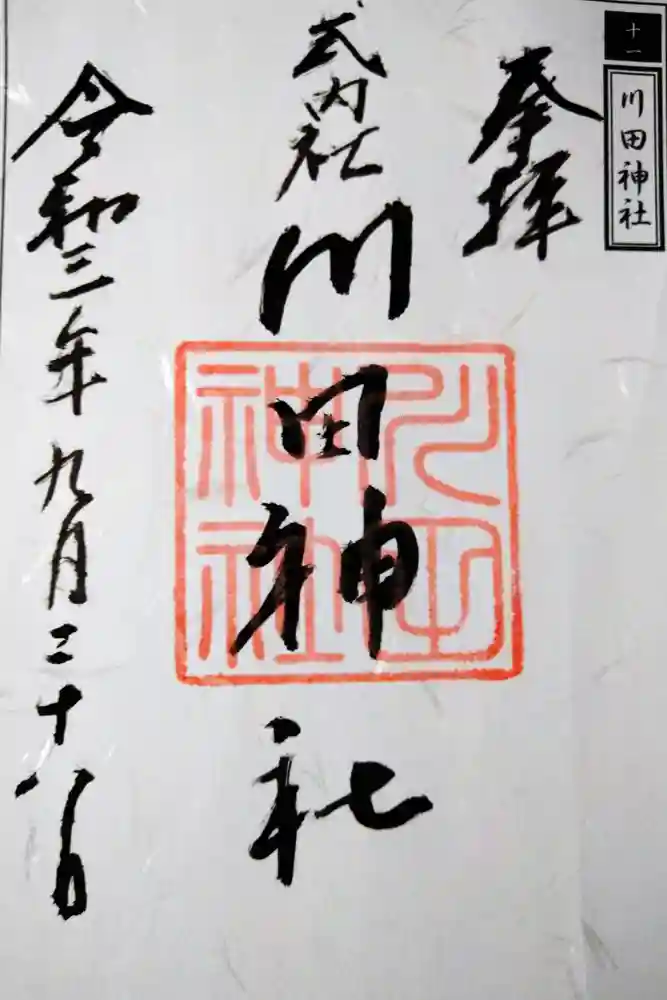 十一
川田神社
奉拝
式内社
川田神社
川田神社
令和三年九月二十八日